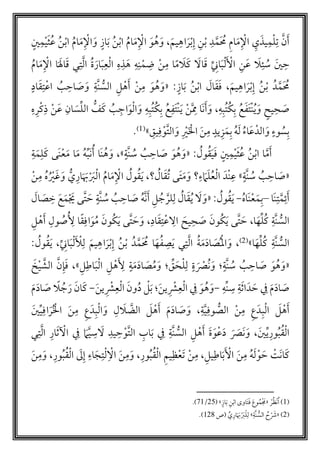 أَنَّ تِلْمِيذَيِ الْإِمَامِ مُحَمَّدِ بْنِ إِبْرَاهِيمَ، وَهُوَ الْإِمَامُ ابْنُ بَازٍ وَالْإِمَامُ ابْنُ عُثَيْمِينَ
حِينَ سُئِلَا عَنِ الْأَلْبَانِيِّ، قَالَا كَلَامًا مِنْ ضِمْنِهِ هَذِهِ الْعِبَارَةُ الَّتِي قَالَهَا الْإِمَامُ
مُحَمَّدُ بْنُ إِبْرَاهِيمَ، فَقَالَ ابْنُ بَازٍ: «وَهُوَ مِنْ أَهْلِ السُّنَّةِ وَصَاحِبُ اعْتِقَادٍ
صَحِيحٍ وَيُنْتَفَعُ بِهِ، وَأَنَا مِمَّنْ يَنْتَفِعُ بِكُتُبِهِ، وَالْوَاجِبُ كَفُّ اللِّسَانِ عَنْ ذِكْرِهِ
بِسُوءٍ وَالدُّعَاءُ لَهُ بِمَزِيدٍ مِنَ الْخَيْرِ وَالتَّوْفِيقِ»(1).
أَمَّا ابْنُ عُثَيْمِينَ فَيَقُولُ: «وَهُوَ صَاحِبُ سُنَّةٍ»، وَهُنَا نُنَبِّهُ مَا مَعْنَى كَلِمَةِ
«صَاحِبُ سُنَّةٍ» عِنْدَ الْعُلَمَاءِ؟ وَمَتَى تُقَالُ؟، يَقُولُ الْإِمَامُ الْبَرْبَهَارِيُّ وَغَيْرُهُ مِنْ
أَئِمَّتِنَا -بِمَعْنَاهُ- يَقُولُ: «وَلَا يُقَالُ لِلرَّجُلِ أَنَّهُ صَاحِبُ سُنَّةٍ حَتَّى تَجْتَمِعَ خِصَالُ
السُّنَّةِ كُلُّهَا، حَتَّى يَكُونَ صَحِيحَ الِاعْتِقَادِ، وَحَتَّى يَكُونَ مُوَافِقًا لِأُصُولِ أَهْلِ
السُّنَّةِ كُلِّهَا»(2)، وَالْمُصَادَمَةُ الَّتِي يَصِفُهَا مُحَمَّدُ بْنُ إِبْرَاهِيمَ لِلْأَلْبَانِيِّ؛ يَقُولُ:
«وَهُوَ صَاحِبُ سُنَّةٍ؛ وَنُصْرَةٍ لِلْحَقِّ؛ وَمُصَادَمَةٍ لِأَهْلِ الْبَاطِلِ»، فَإِنَّ الشَّيْخَ
صَادَمَ فِي حَدَاثَةِ سِنِّهِ -وَهُوَ فِي الْعِشْرِينَ؛ بَلْ دُونَ الْعِشْرِينَ- كَانَ رَجُلًا صَادَمَ
أَهْلَ الْبِدَعِ مِنَ الصُّوفِيَّةِ، وَصَادَمَ أَهْلَ الضَّلَالِ وَالْبِدَعِ مِنَ الْخُرَافِيِّينَ
الْقُبُورِيِّينَ، وَنَصَرَ دَعْوَةَ أَهْلِ السُّنَّةِ فِي بَابِ التَّوْحِيدِ لَا سِيَّمَا الْآثَارِ الَّتِي
كَانَتْ حَوْلَهُ مِنَ الْأَبَاطِيلِ، مِنْ تَعْظِيمِ الْقُبُورِ، وَمِنَ الِالْتِجَاءِ إِلَى الْقُبُورِ، وَمِنَ
(1) انْظُرْ: «مَجْمُوعُ فَتَاوَى ابْنِ بَازٍ» (71/25).
(2) «شَرْحُ السُّنَّةِ» لِلْبَرْبَهَارِيِّ (ص 128).